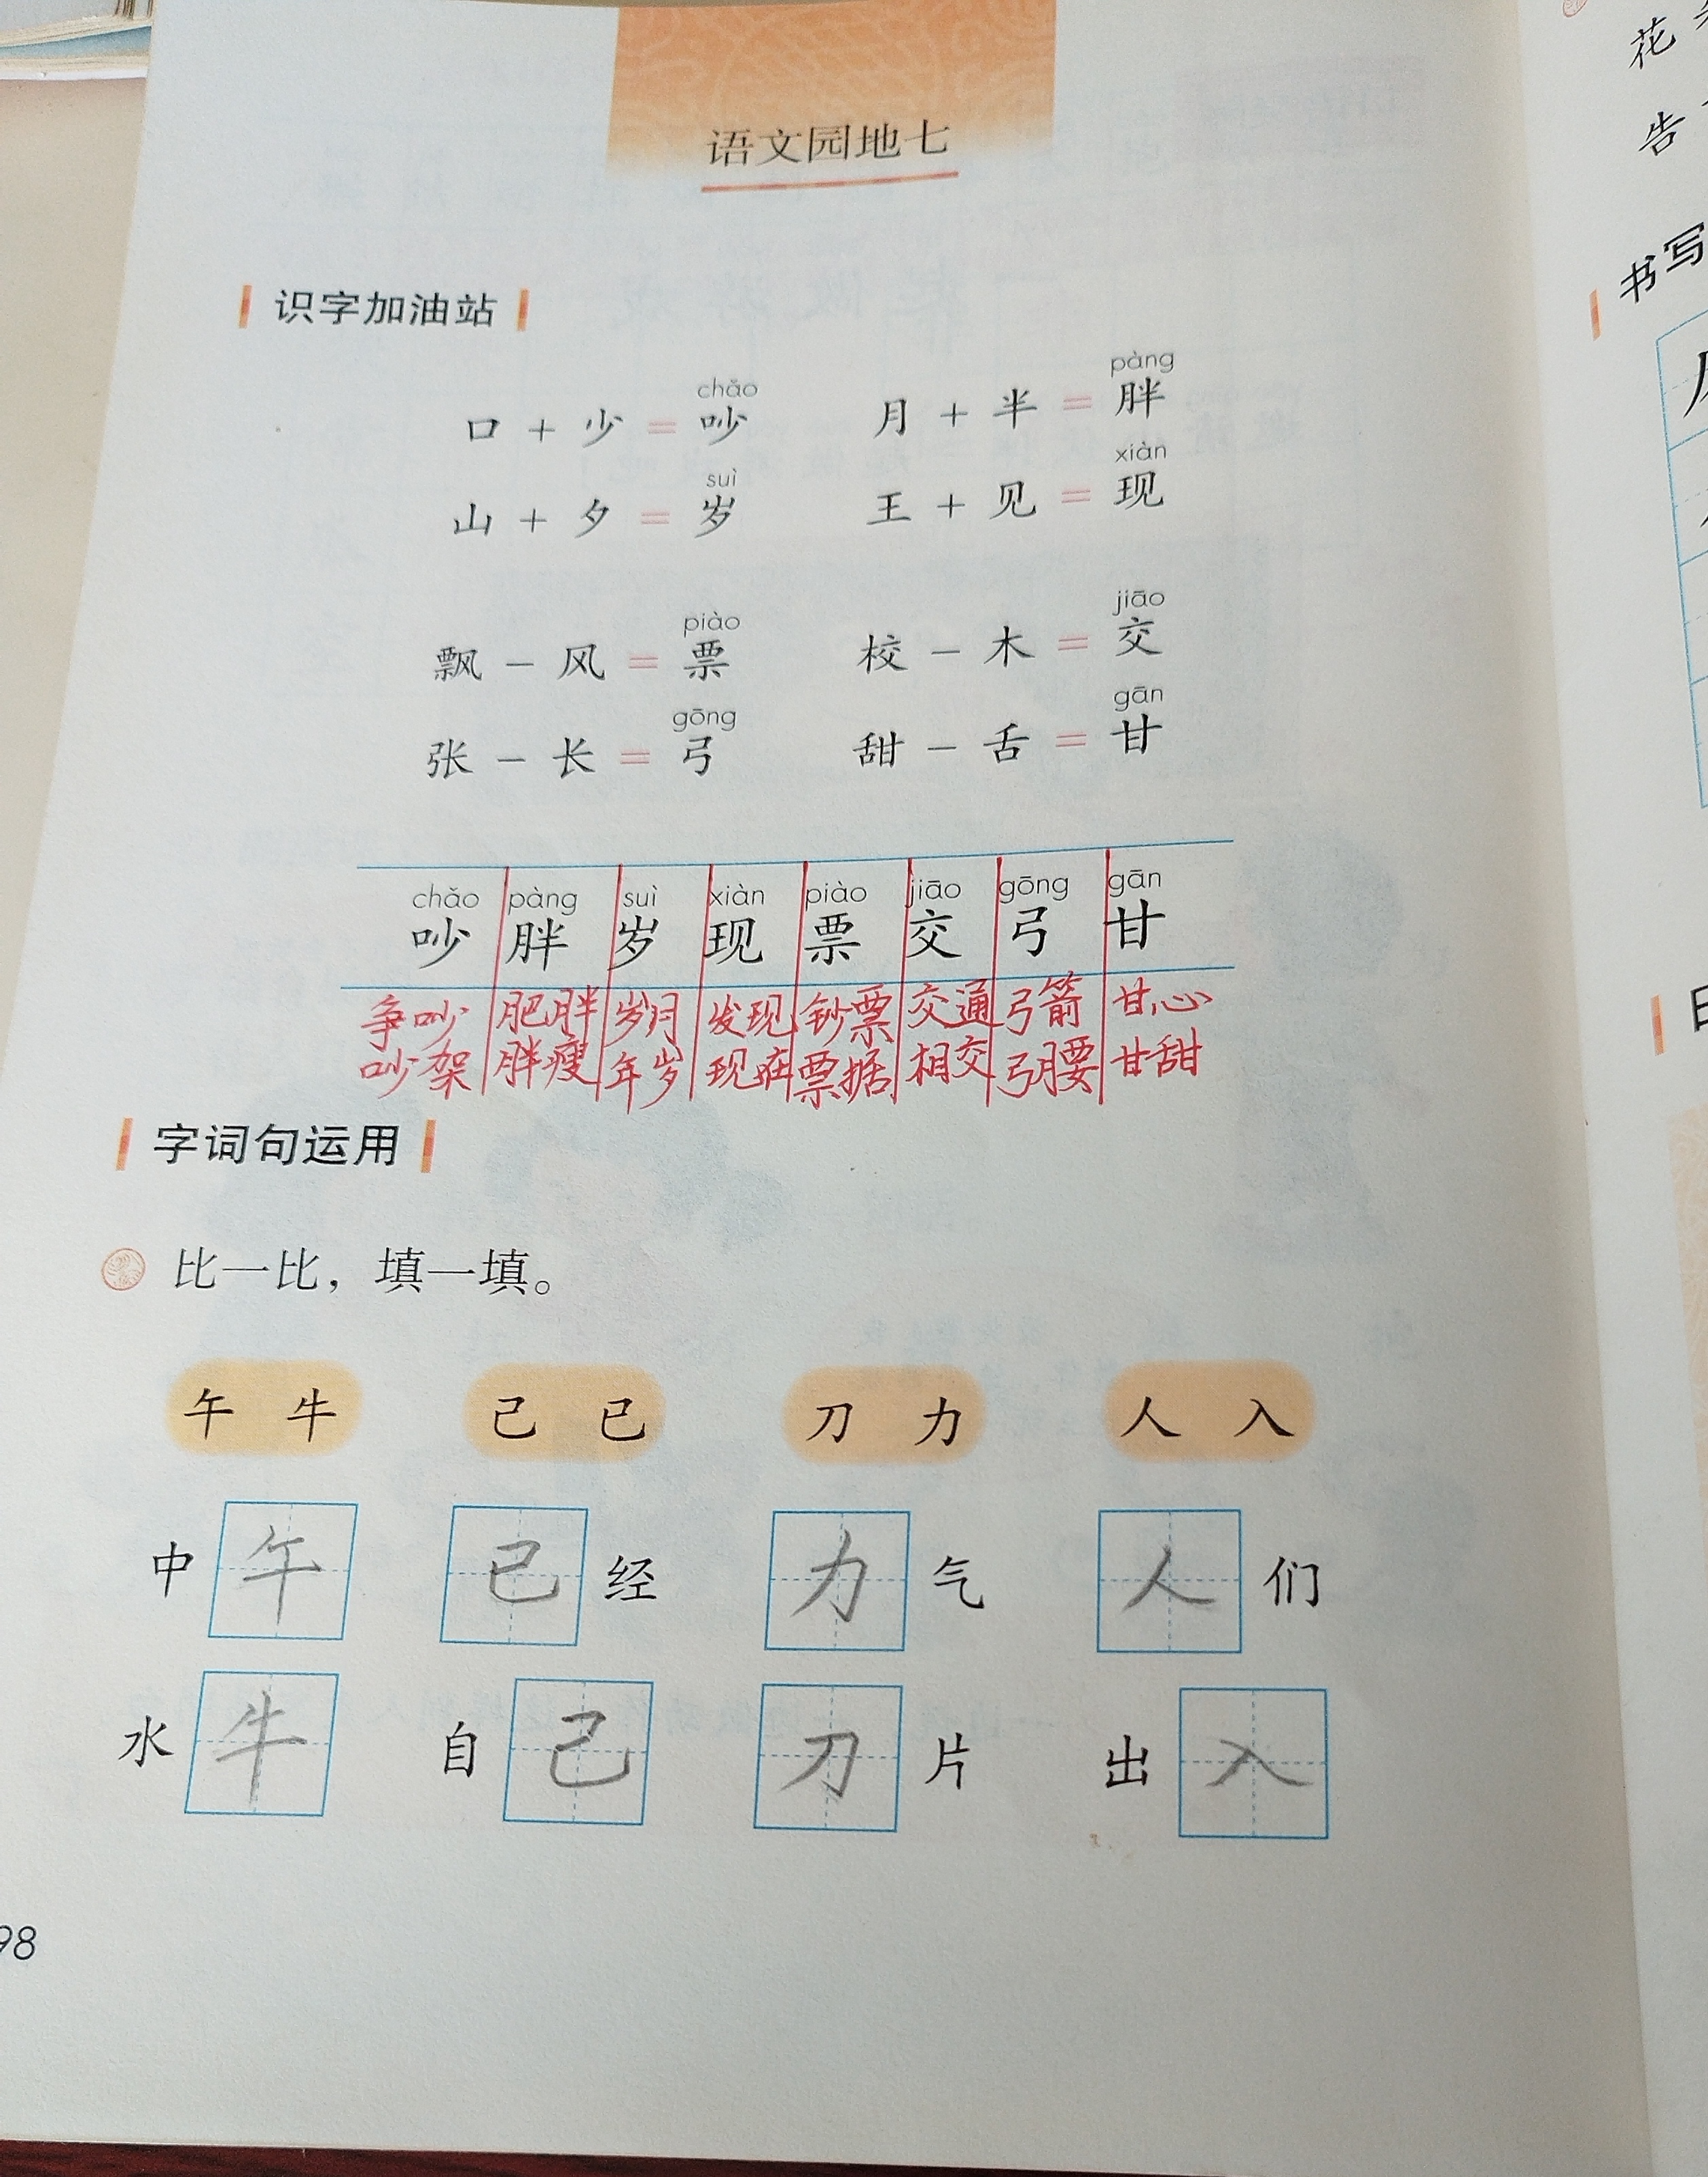 语文园地七
识字加油站
chǎo pàng
口 + 少 = 吵 月 + 半 = 胖
suì xiàn
山 + 夕 = 岁 王 + 见 = 现
piào jiāo
飘 - 风 = 票 校 - 木 = 交
gōng gān
张 - 长 = 弓 甜 - 舌 = 甘
chǎo pàng suì xiàn piào jiāo gōng gān
吵 胖 岁 现 票 交 弓 甘
争吵 肥胖 岁月 发现 钞票 交通 弓箭 甘心
吵架 胖瘦 年岁 现在 票据 相交 弓腰 甘甜
字词句运用
比一比，填一填。
午 牛 己 已 刀 力 人 入
中午 已经 力气 人们
水牛 自己 刀片 出入
98
花
告
书写